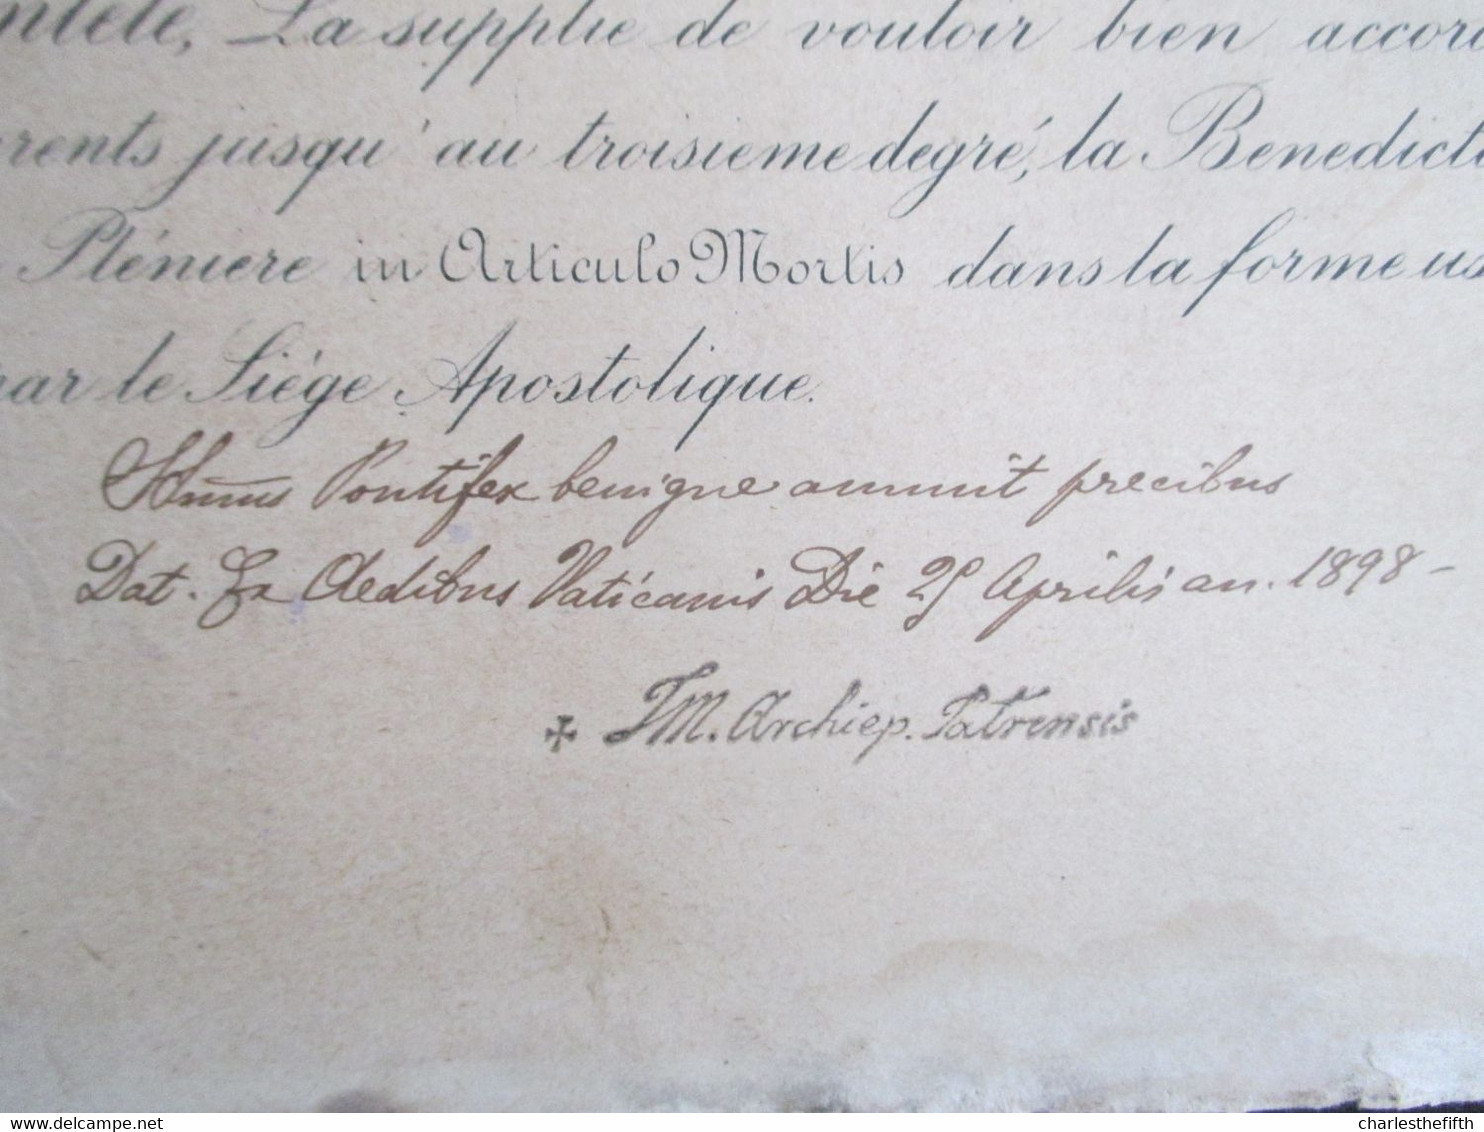 ntété, La supplie de vouloir bien accord
rents jusqu'au troisieme degré, la Benedicti
Pléniere in Articulo Mortis dans la forme us
par le Siége Apostolique.
Pontifex benigne annuit precibus
Dat. Ex Aedibus Vaticanis Die Aprilis an. 1898 -
✠ Archiep. Patrensis
charlesthefifth
www.delcampe.net